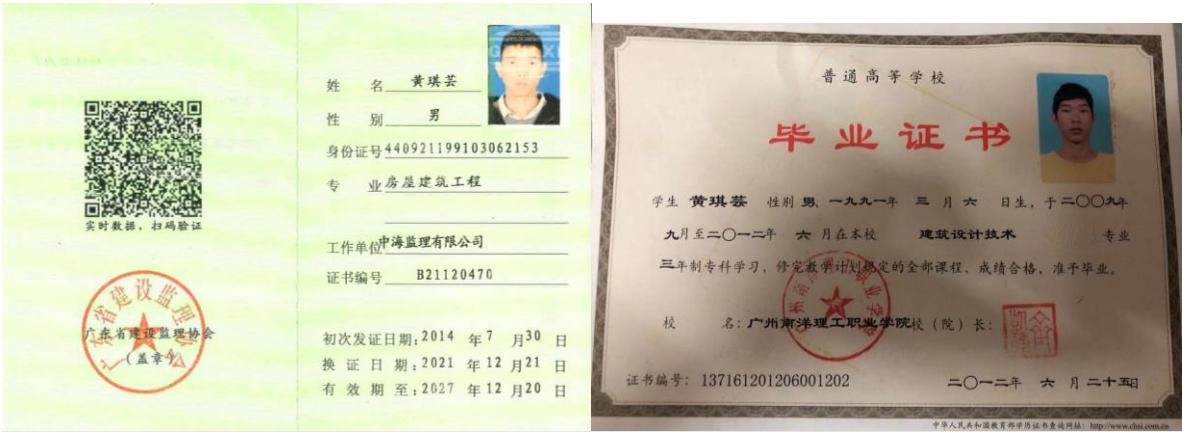 实时数据，扫码验证
广东省建设监理协会
广东省建设监理协会
（盖章）
姓 名 黄琪芸
性 别 男
身份证号 440921199103062153
专 业 房屋建筑工程
工作单位 中海监理有限公司
证书编号 B21120470
初次发证日期：2014 年 7 月 30 日
换 证 日 期：2021 年 12 月 21 日
有 效 期 至：2027 年 12 月 20 日
普通高等学校
毕业证书
学生 黄琪芸 性别 男，一九九一年 三 月 六 日生，于二〇〇九年
九月至二〇一二年 六 月在本校 建筑设计技术 专业
三年制专科学习，修完教学计划规定的全部课程，成绩合格，准予毕业。
校 名：广州南洋理工职业学院 校（院）长：
广州南洋理工职业学院
证书编号：137161201206001202 二〇一二年 六 月 二十五日
中华人民共和国教育部学历证书查询网址：http://www.chsi.com.cn